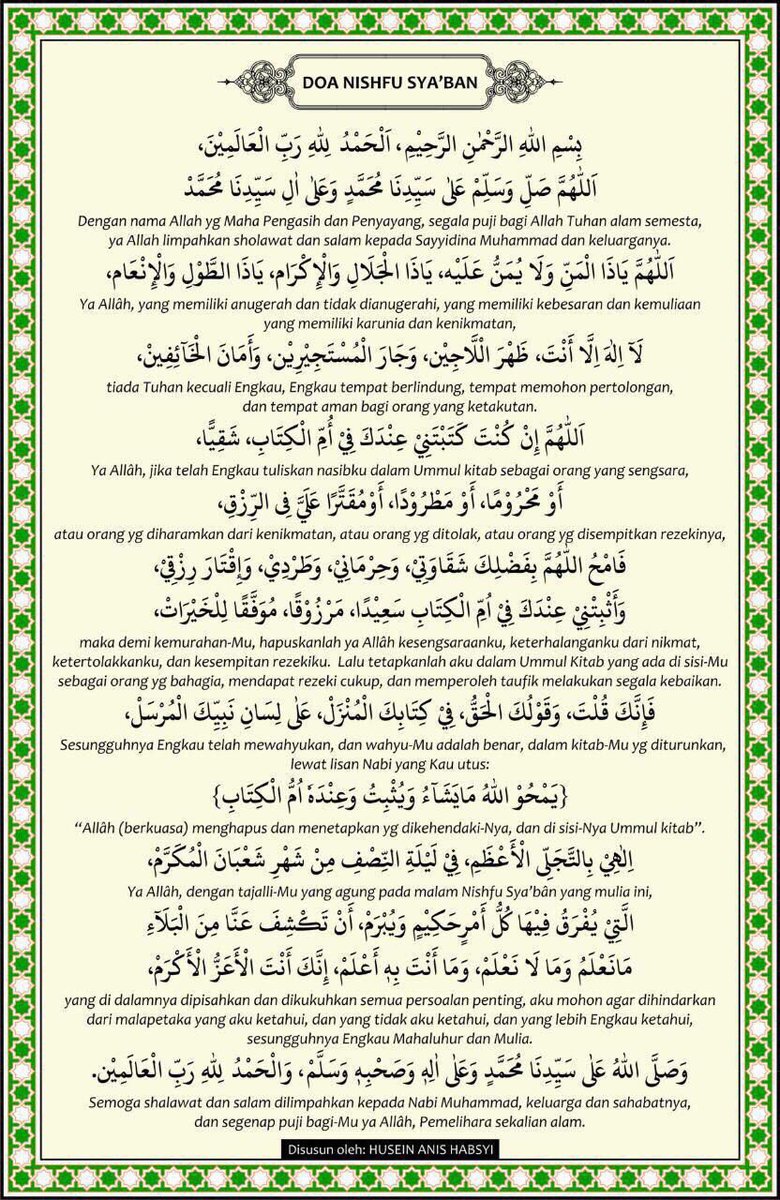 DOA NISHFU SYA'BAN
بِسْمِ اللهِ الرَّحْمٰنِ الرَّحِيْمِ، اَلْحَمْدُ لِلّٰهِ رَبِّ الْعَالَمِيْنَ،
اَللّٰهُمَّ صَلِّ وَسَلِّمْ عَلٰى سَيِّدِنَا مُحَمَّدٍ وَعَلٰى اٰلِ سَيِّدِنَا مُحَمَّدْ
Dengan nama Allah yg Maha Pengasih dan Penyayang, segala puji bagi Allah Tuhan alam semesta,
ya Allah limpahkan sholawat dan salam kepada Sayyidina Muhammad dan keluarganya.
اَللّٰهُمَّ يَاذَا الْمَنِّ وَلَا يُمَنُّ عَلَيْه، يَاذَا الْجَلَالِ وَالْإِكْرَام، يَاذَا الطَّوْلِ وَالْإِنْعَام،
Ya Allâh, yang memiliki anugerah dan tidak dianugerahi, yang memiliki kebesaran dan kemuliaan
yang memiliki karunia dan kenikmatan,
لَآ اِلٰهَ اِلَّا أَنْتَ، ظَهْرَ اللَّاجِيْن، وَجَارَ الْمُسْتَجِيْرِيْن، وَأَمَانَ الْخَآئِفِيْنْ،
tiada Tuhan kecuali Engkau, Engkau tempat berlindung, tempat memohon pertolongan,
dan tempat aman bagi orang yang ketakutan.
اَللّٰهُمَّ إِنْ كُنْتَ كَتَبْتَنِيْ عِنْدَكَ فِيْ أُمِّ الْكِتَابِ، شَقِيًّا،
Ya Allâh, jika telah Engkau tuliskan nasibku dalam Ummul kitab sebagai orang yang sengsara,
أَوْ مَحْرُوْمًا، أَوْ مَطْرُوْدًا، أَوْمُقَتَّرًا عَلَيَّ فِى الرِّزْقِ،
atau orang yg diharamkan dari kenikmatan, atau orang yg ditolak, atau orang yg disempitkan rezekinya,
فَامْحُ اللّٰهُمَّ بِفَضْلِكَ شَقَاوَتِيْ، وَحِرْمَانِيْ، وَطَرْدِيْ، وَإِقْتَارَ رِزْقِيْ،
وَأَثْبِتْنِيْ عِنْدَكَ فِيْ اُمِّ الْكِتَابِ سَعِيْدًا، مَرْزُوْقًا، مُوَفَّقًا لِلْخَيْرَاتْ،
maka demi kemurahan-Mu, hapuskanlah ya Allâh kesengsaraanku, keterhalanganku dari nikmat,
ketertolakkanku, dan kesempitan rezekiku. Lalu tetapkanlah aku dalam Ummul Kitab yang ada di sisi-Mu
sebagai orang yg bahagia, mendapat rezeki cukup, dan memperoleh taufik melakukan segala kebaikan.
فَإِنَّكَ قُلْتَ، وَقَوْلُكَ الْحَقُّ، فِيْ كِتَابِكَ الْمُنْزَلْ، عَلٰى لِسَانِ نَبِيِّكَ الْمُرْسَلْ،
Sesungguhnya Engkau telah mewahyukan, dan wahyu-Mu adalah benar, dalam kitab-Mu yg diturunkan,
lewat lisan Nabi yang Kau utus:
{يَمْحُوْ اللهُ مَايَشَآءُ وَيُثْبِتُ وَعِنْدَهٗ اُمُّ الْكِتَابِ}
"Allâh (berkuasa) menghapus dan menetapkan yg dikehendaki-Nya, dan di sisi-Nya Ummul kitab".
اِلٰهِيْ بِالتَّجَلِّى الْأَعْظَمِ، فِيْ لَيْلَةِ النِّصْفِ مِنْ شَهْرِ شَعْبَانَ الْمُكَرَّمْ،
Ya Allâh, dengan tajalli-Mu yang agung pada malam Nishfu Sya'bân yang mulia ini,
الَّتِيْ يُفْرَقُ فِيْهَا كُلُّ أَمْرٍحَكِيْمٍ وَيُبْرَمْ، أَنْ تَكْشِفَ عَنَّا مِنَ الْبَلَآءِ
مَانَعْلَمُ وَمَا لَا نَعْلَمْ، وَمَا أَنْتَ بِهٖ أَعْلَمْ، إِنَّكَ أَنْتَ الْأَعَزُّ الْأَكْرَمْ،
yang di dalamnya dipisahkan dan dikukuhkan semua persoalan penting, aku mohon agar dihindarkan
dari malapetaka yang aku ketahui, dan yang tidak aku ketahui, dan yang lebih Engkau ketahui,
sesungguhnya Engkau Mahaluhur dan Mulia.
وَصَلَّى اللهُ عَلٰى سَيِّدِنَا مُحَمَّدٍ وَعَلٰى اٰلِهٖ وَصَحْبِهٖ وَسَلَّمْ، وَالْحَمْدُ لِلّٰهِ رَبِّ الْعَالَمِيْن.
Semoga shalawat dan salam dilimpahkan kepada Nabi Muhammad, keluarga dan sahabatnya,
dan segenap puji bagi-Mu ya Allâh, Pemelihara sekalian alam.
Disusun oleh: HUSEIN ANIS HABSYI